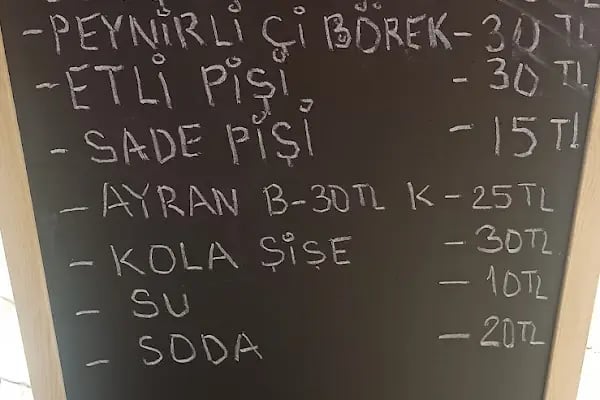 - PEYNİRLİ Çİ BÖREK - 30 TL
- ETLİ PİŞİ - 30 TL
- SADE PİŞİ - 15 TL
- AYRAN B-30TL K-25TL
- KOLA ŞİŞE - 30TL
- SU - 10TL
- SODA - 20TL